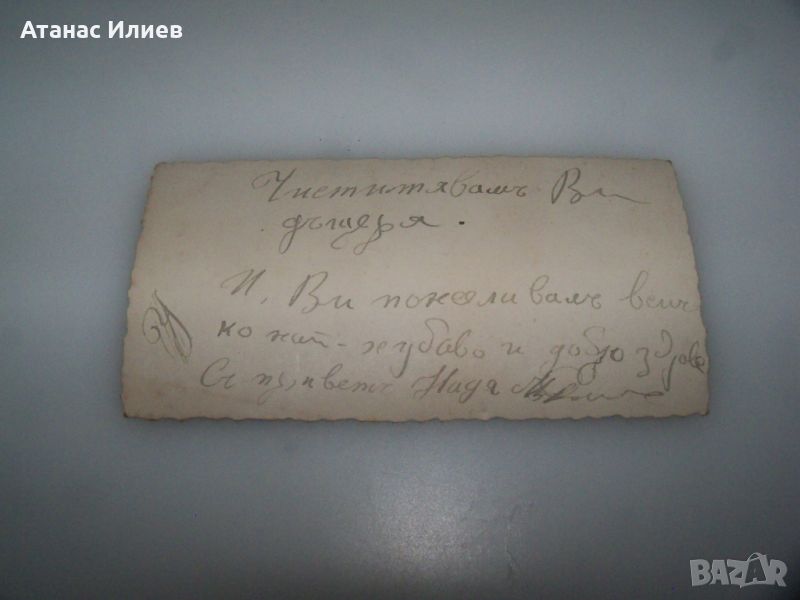 Атанас Илиев
Чиститявамъ Ви
дъщеря.
И, Ви пожеливамъ всич-
ко най-хубаво и добро здраве
Съ приветъ Надя
BAZAR